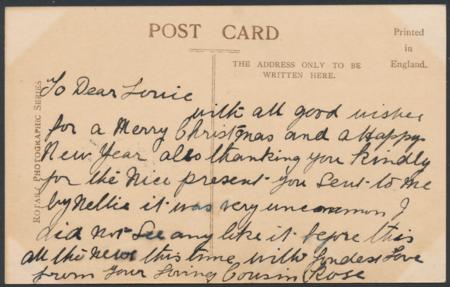 POST CARD
Printed
in
England.
THE ADDRESS ONLY TO BE
WRITTEN HERE.
ROTARY PHOTOGRAPHIC SERIES
To Dear Louie
with all good wishes
for a Merry Christmas and a Happy
New Year also thanking you kindly
for the Nice present you sent to me
by Nellie it was very uncommon I
did not see any like it before this
all the News this time with fondest Love
from your loving Cousin Rose